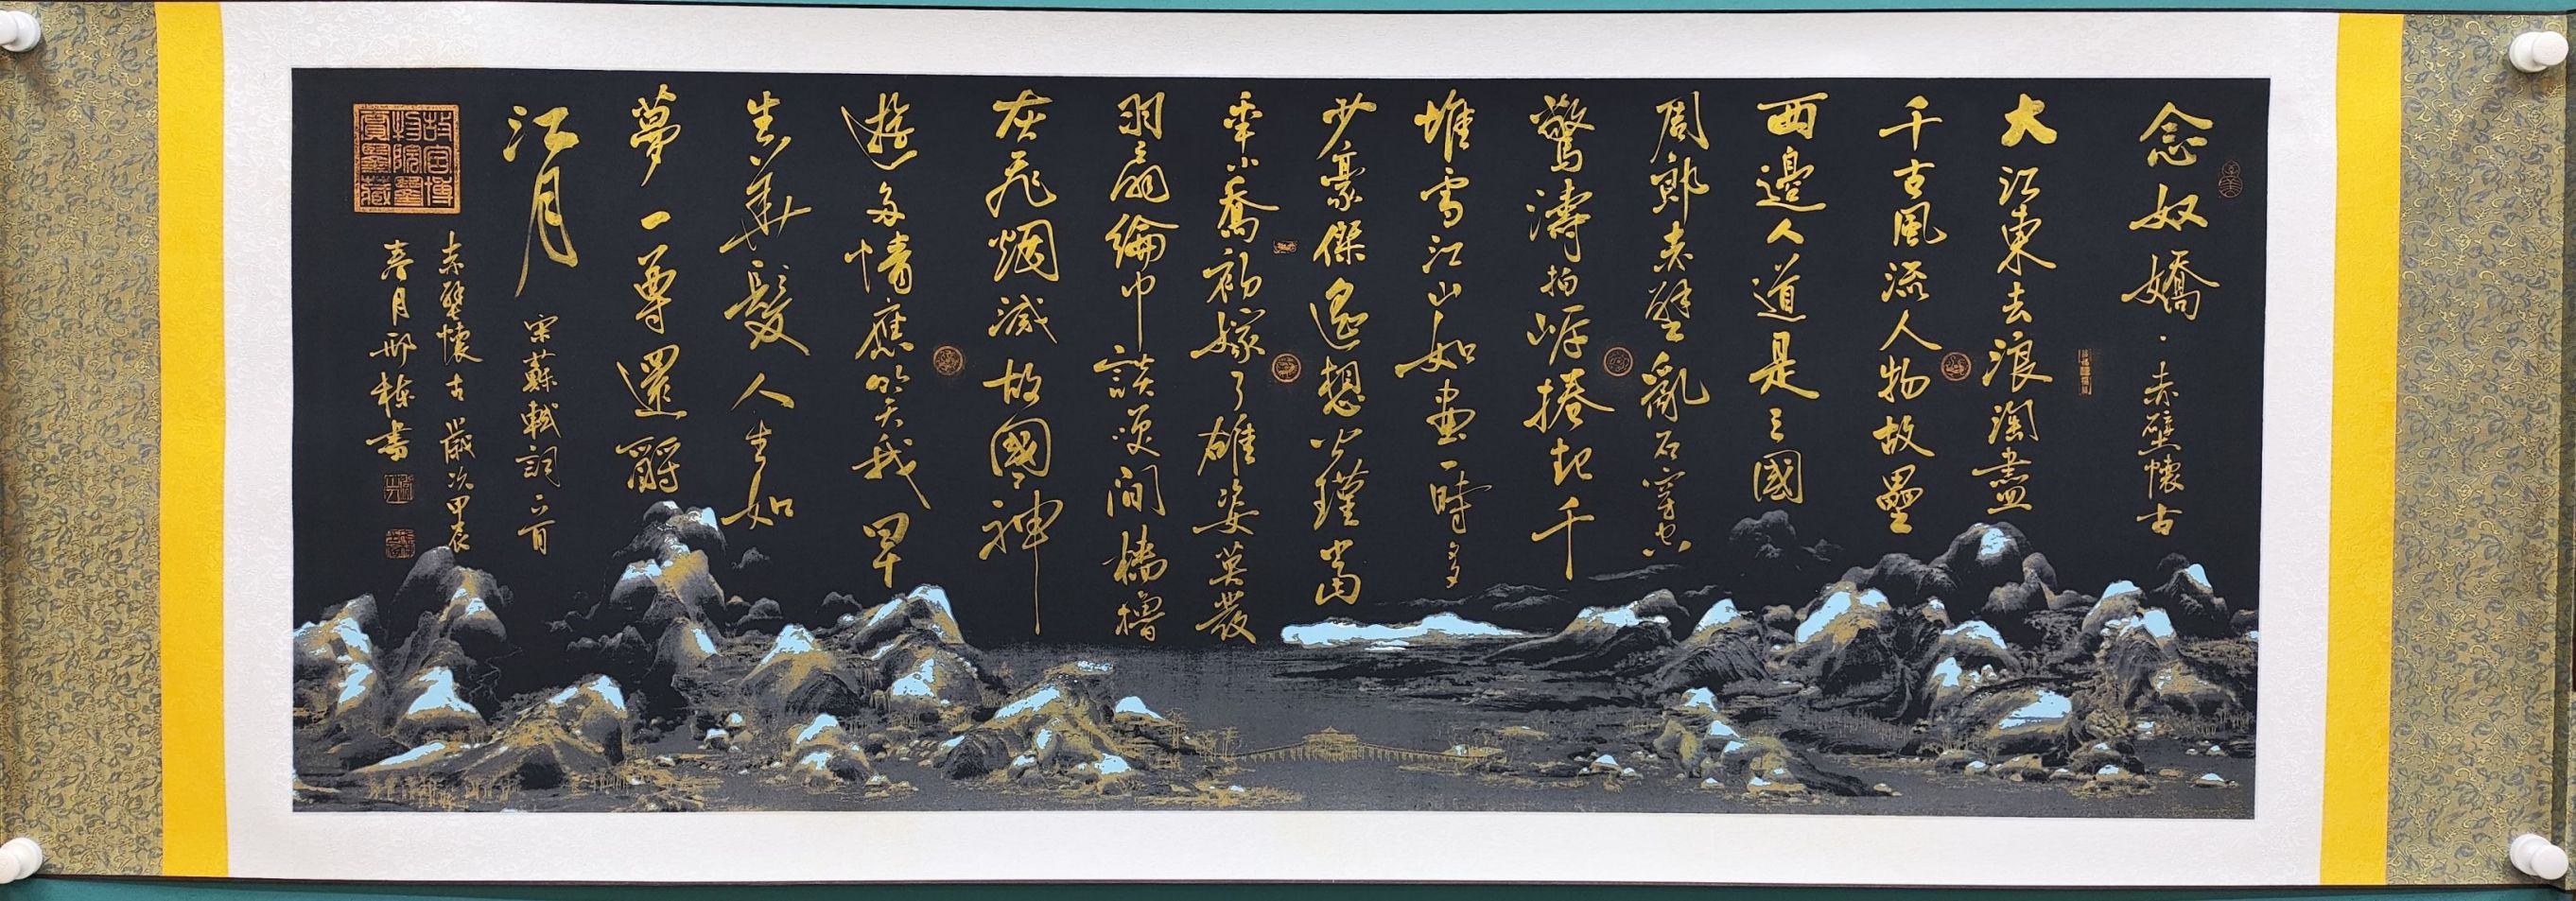 念奴嬌·赤壁懷古
大江東去浪淘盡
千古風流人物故壘
西邊人道是三國
周郎赤壁亂石穿空
驚濤拍岸捲起千
堆雪江山如畫一時多
少豪傑遙想公瑾當
年小喬初嫁了雄姿英發
羽扇綸巾談笑間檣櫓
灰飛烟滅故國神
遊多情應笑我早
生華髮人生如
夢一尊還酹
江月
宋蘇軾詞一首
赤壁懷古歲次甲辰
春月邢棟書